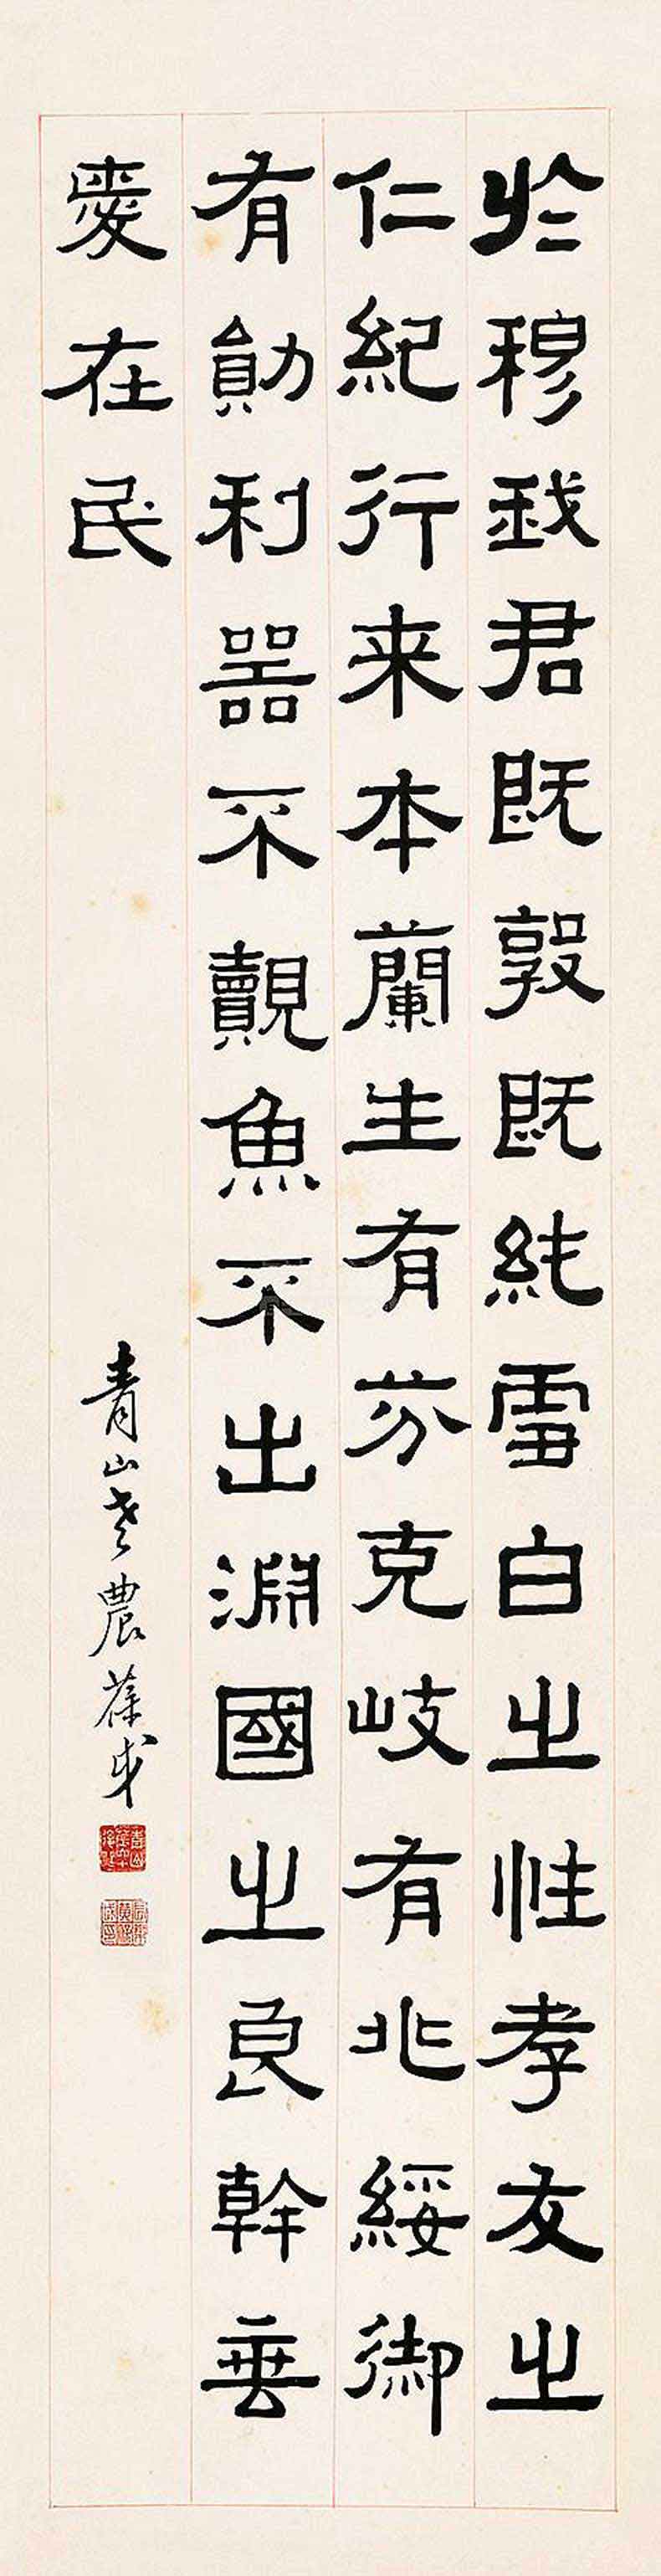 於穆我君既敦既純雪白之性孝友之
仁紀行来本蘭生有芬克岐有兆綏御
有勛利器不覿魚不出淵國之良幹垂
愛在民
青山老農葆戉